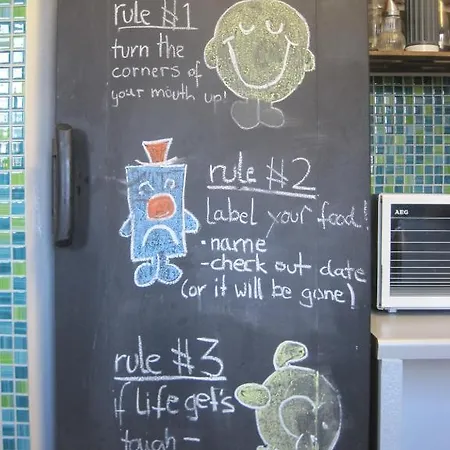 rule #1
turn the
corners of
your mouth up!
rule #2
Label your food!
•name
-check out date
(or it will be gone)
AEG
rule #3
if life get's
tough -